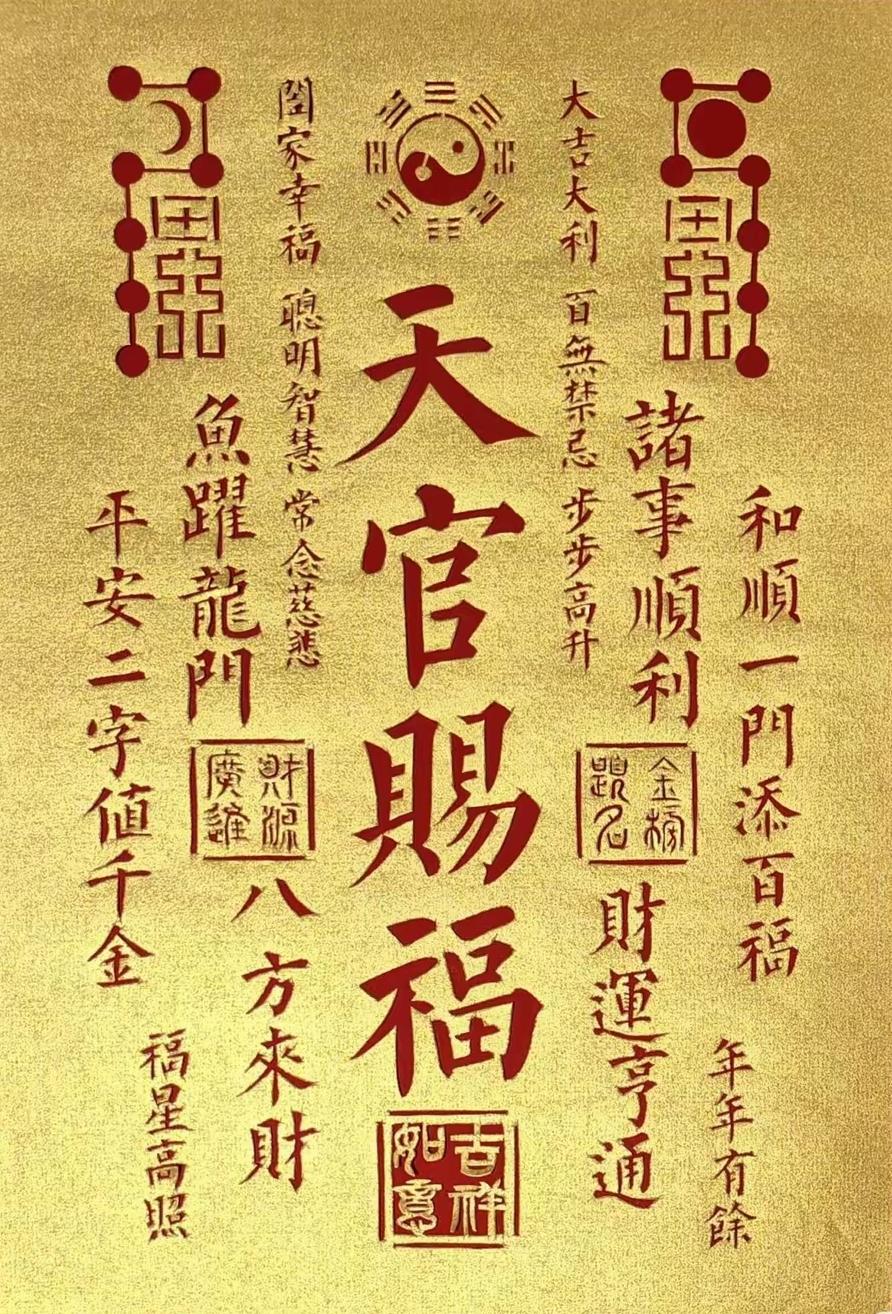 和順一門添百福
年年有餘
諸事順利
金榜題名
財運亨通
大吉大利 百無禁忌 步步高升
天官賜福
吉祥如意
閤家幸福 聰明智慧 常念慈悲
魚躍龍門
財源廣進
八方來財
平安二字值千金
福星高照